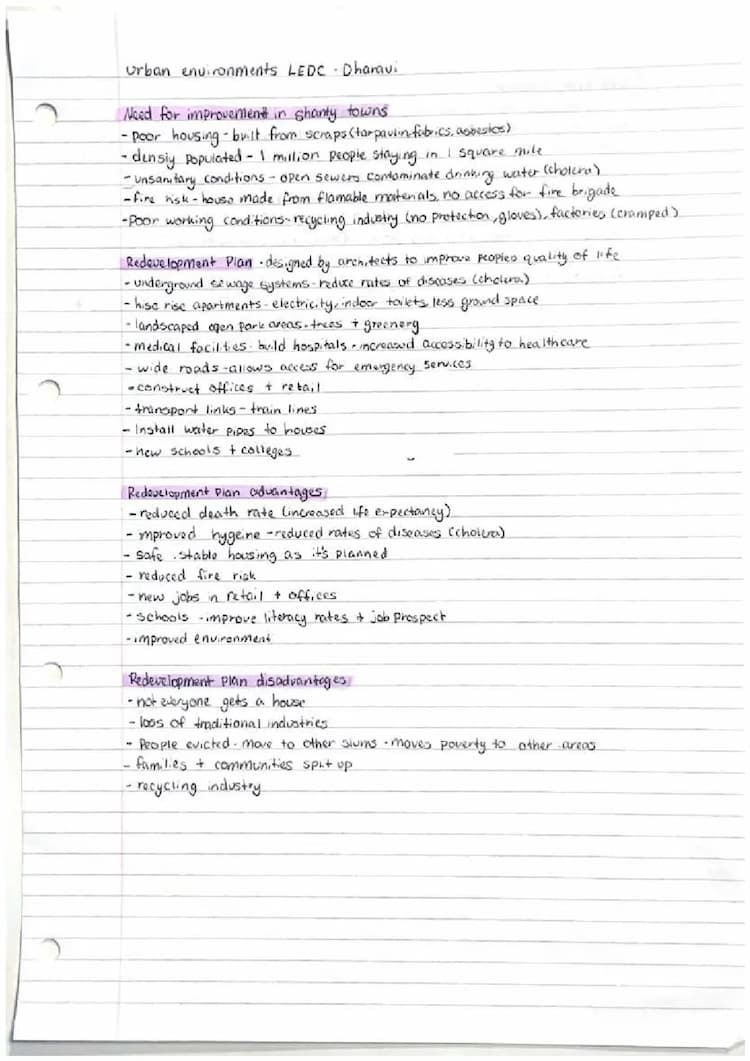 Urban environments LEDC - Dharavi
Need for improvement in shanty towns
- poor housing - built from scraps (tarpaulin fabrics, asbestos)
- densiy populated - 1 million people staying in 1 square mile
- unsanitary conditions - open sewers contaminate drinking water (cholera)
- fire risk - house made from flamable materials, no access for fire brigade
- Poor working conditions - recycling industry (no protection, gloves), factories (cramped)
Redevelopment Plan - designed by architects to improve peoples quality of life
- underground sewage systems - reduce rates of diseases (cholera)
- hise rise apartments - electricity, indoor toilets, less ground space
- landscaped open park areas - trees + greenery
- medical facilities - build hospitals - increased accessibility to healthcare
- wide roads - allows access for emergency services
- construct offices + retail
- transport links - train lines
- Install water pipes to houses
- new schools + colleges
Redevelopment plan advantages
- reduced death rate (increased life expectancy)
- improved hygeine - reduced rates of diseases (cholera)
- safe, stable housing as it's planned
- reduced fire risk
- new jobs in retail + offices
- schools - improve literacy rates + job prospect
- improved environment
Redevelopment plan disadvantages
- not everyone gets a house
- loss of traditional industries
- People evicted - move to other slums - moves poverty to other areas
- families + communities split up
- recycling industry